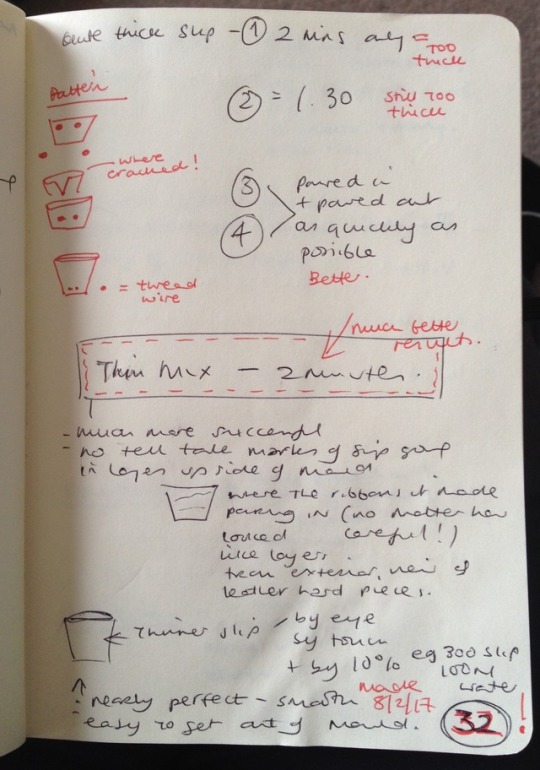 Quite thick slip - ① 2 mins only = TOO thick
Pattern
② = 1.30 still too thick
where cracked!
③ ④ poured in
+ poured out
as quickly as
possible
Better.
• = tweed wire
much better results.
Thin Mix - 2 minutes.
- much more successful
- no tell tale marks of slip going
in layers up side of mould
where the ribbons it made
pouring in (no matter how
careful!)
looked
like layers
from exterior, view of
leather hard pieces.
Thinner slip by eye
by touch
+ by 10% eg 300 slip
100ml
water
- nearly perfect - smooth
- easy to get out of mould.
made
8/2/17
32 !